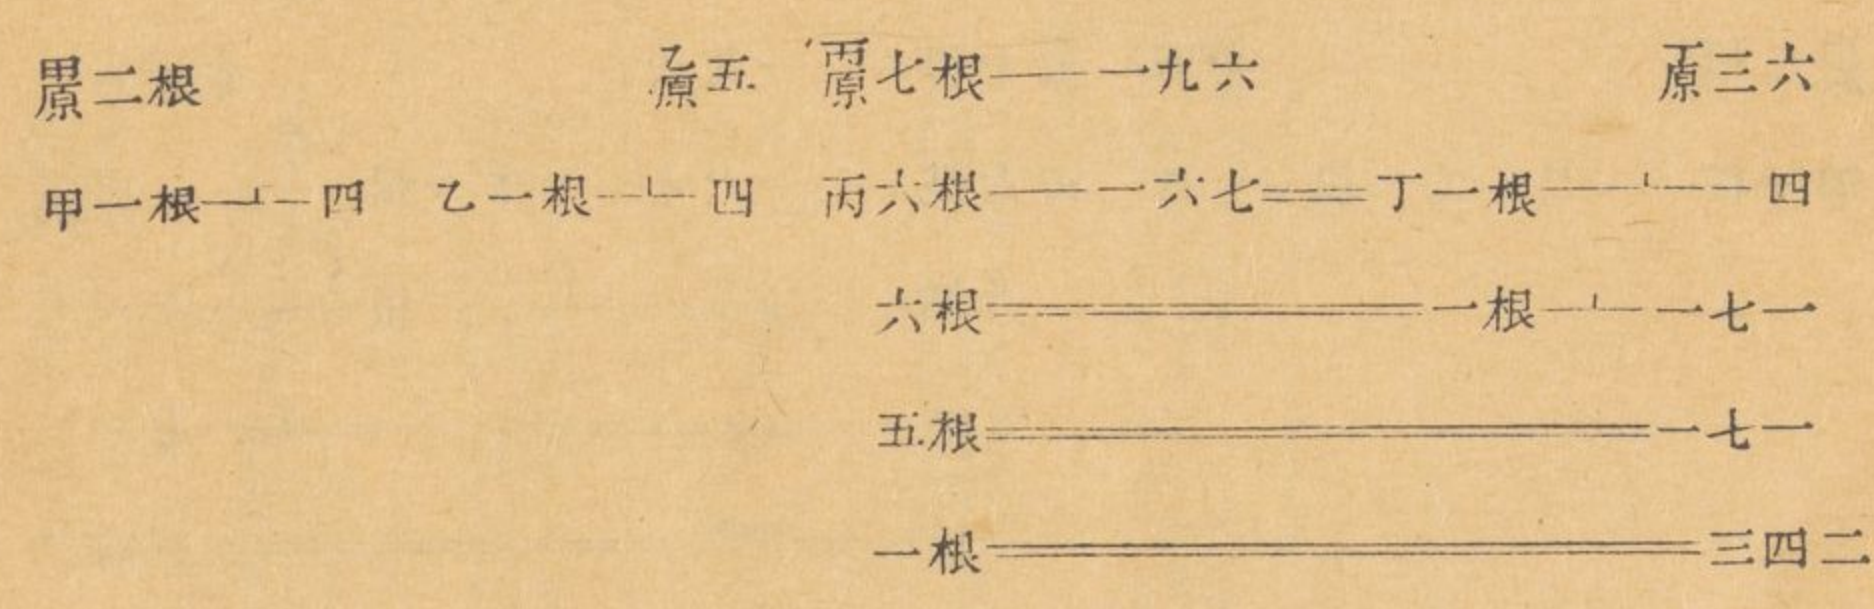 甲原二根 乙原五 丙原七根——一九六 丁原三六
甲一根—┴—四 乙一根—┴—四 丙六根——一六七══丁一根—┴—四
六根══一根—┴—一七一
五根══一七一
一根══三四二